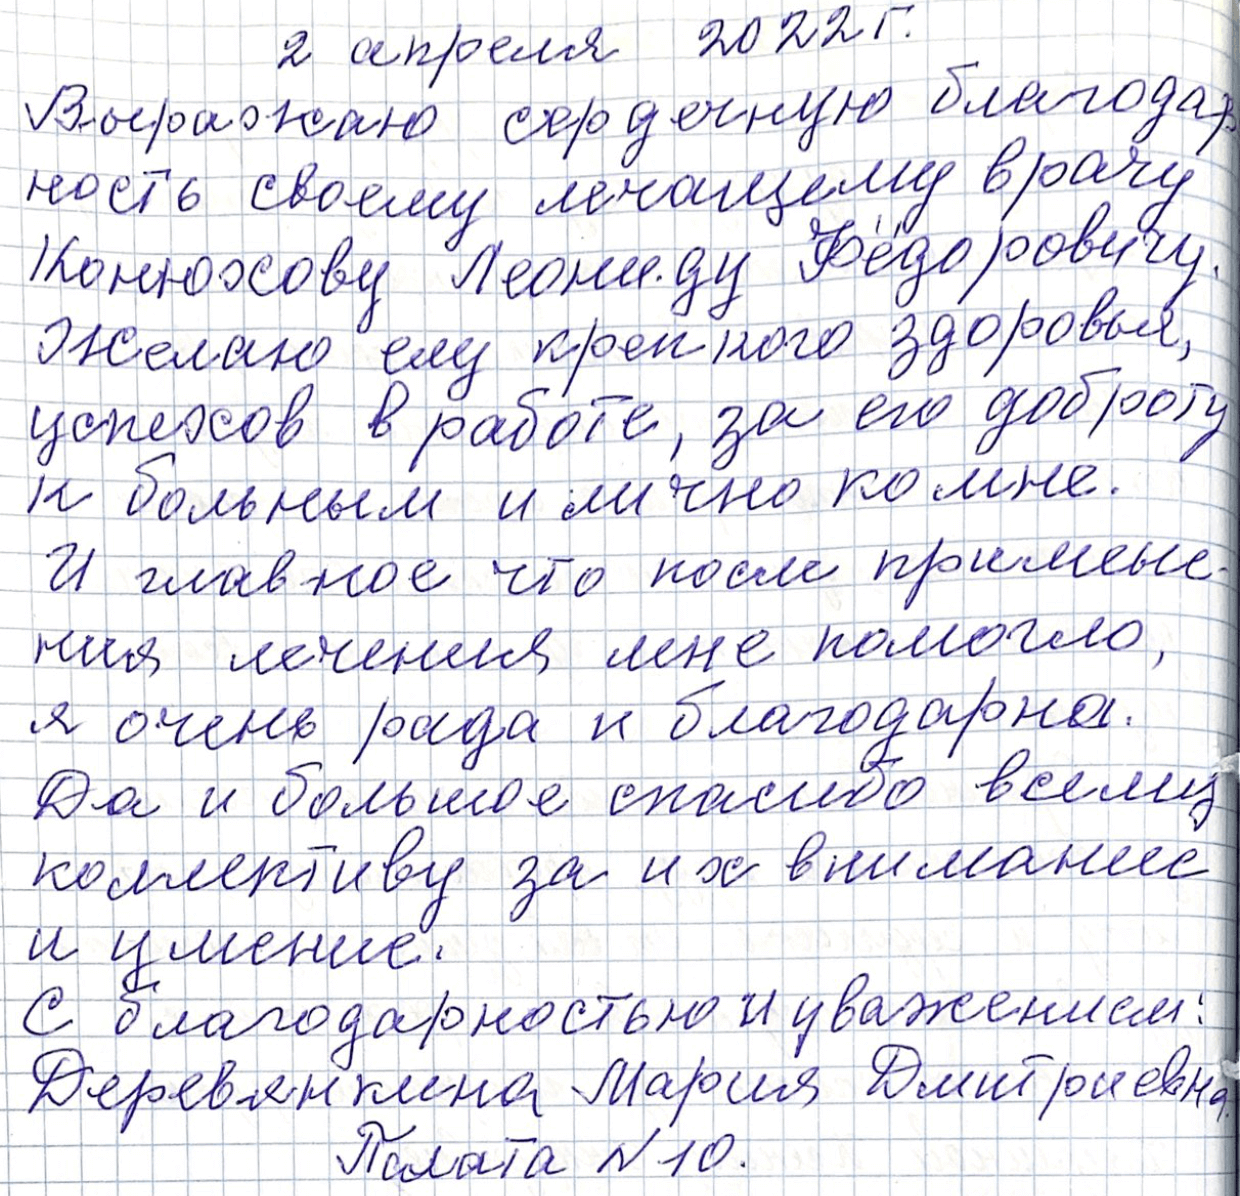 2 апреля 2022 г.
Выражаю сердечную благодар
ность своему лечащему врачу
Конюхову Леониду Фёдоровичу.
Желаю ему крепкого здоровья,
успехов в работе, за его доброту
к больным и лично ко мне.
И главное что после примене-
ния лечения мне помогло,
я очень рада и благодарна.
Да и большое спасибо всему
коллективу за их внимание
и умение.
С благодарностью и уважением:
Деревянкина Мария Дмитриевна.
Палата N 10.